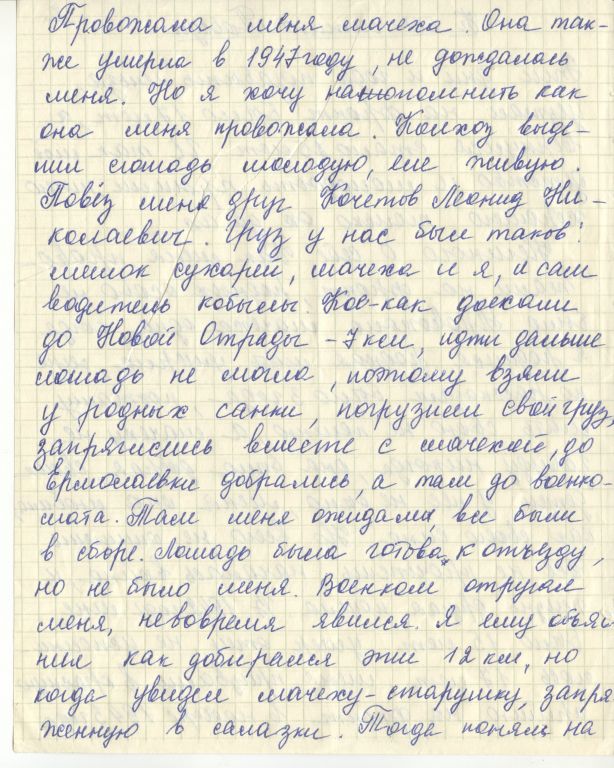 Провожала меня мачеха. Она так-
же умерла в 1947 году, не дождалась
меня. Но я хочу напомнить как
она меня провожала. Колхоз выде-
лил лошадь молодую, еле живую.
Повёз меня друг Кочетов Леонид Ни-
колаевич. Груз у нас был таков:
мешок сухарей, мачеха и я, и сам
водитель кобылы. Кое-как доехали
до Новой Отрады - 7 км, идти дальше
лошадь не могла, поэтому взяли
у родных санки, погрузили свой груз,
запряглись вместе с мачехой, до
Ермолаевки добрались, а там до военко-
мата. Там меня ожидали, все были
в сборе. Лошадь была готова к отъезду,
но не было меня. Военком отругал
меня, невовремя явился. Я ему объяс
нил как добирался эти 12 км, но
когда увидел мачеху-старушку, запря
женную в салазки. Тогда понял на